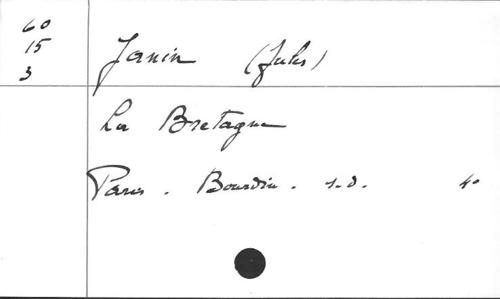 60
15
3
Janin (Jules)
La Bretagne
Paris. Bourdin. s.d. 4°